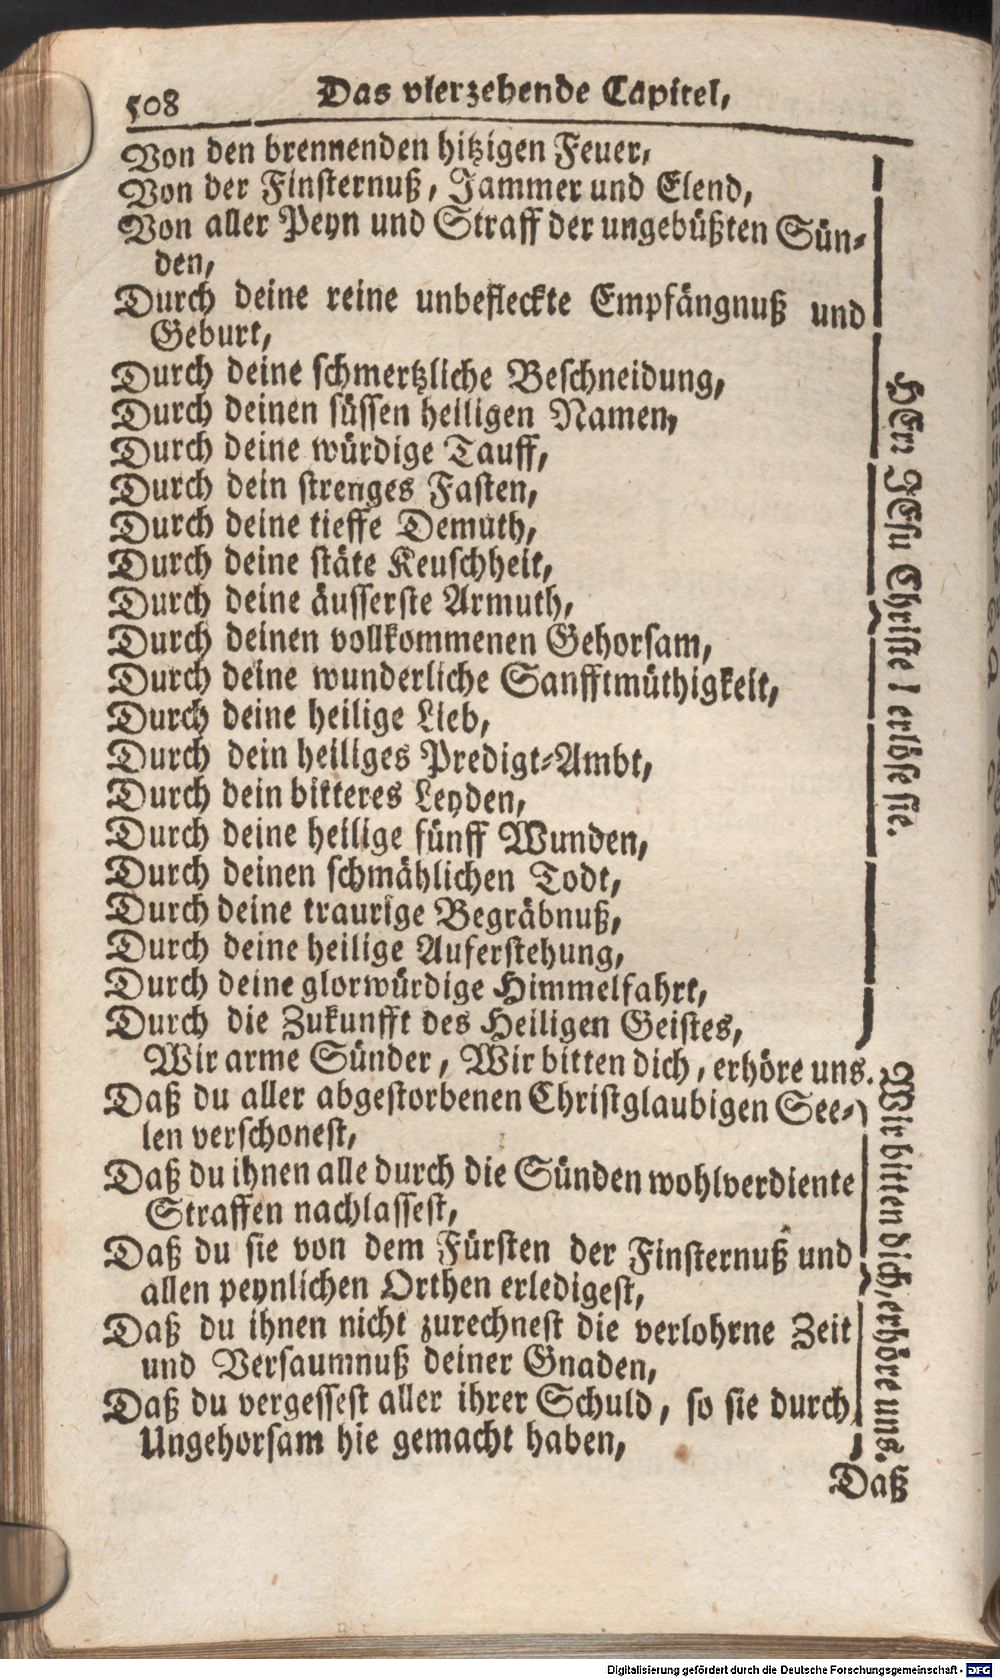 508
Das vierzehende Capitel,
Von den brennenden hitzigen Feuer,
Von der Finsternuß, Jammer und Elend,
Von aller Peyn und Straff der ungebüßten Sün-
den,
Durch deine reine unbefleckte Empfängnuß und
Geburt,
Durch deine schmertzliche Beschneidung,
Durch deinen süssen heiligen Namen,
Durch deine würdige Tauff,
Durch dein strenges Fasten,
Durch deine tieffe Demuth,
Durch deine stäte Keuschheit,
Durch deine äusserste Armuth,
Durch deinen vollkommenen Gehorsam,
Durch deine wunderliche Sanfftmüthigkeit,
Durch deine heilige Lieb,
Durch dein heiliges Predigt-Ambt,
Durch dein bitteres Leyden,
Durch deine heilige fünff Wunden,
Durch deinen schmählichen Todt,
Durch deine traurige Begräbnuß,
Durch deine heilige Auferstehung,
Durch deine glorwürdige Himmelfahrt,
Durch die Zukunfft des Heiligen Geistes,
HErr JEsu Christe / erlöse sie.
Wir arme Sünder, Wir bitten dich, erhöre uns.
Daß du aller abgestorbenen Christglaubigen See-
len verschonest,
Daß du ihnen alle durch die Sünden wohlverdiente
Straffen nachlassest,
Daß du sie von dem Fürsten der Finsternuß und
allen peynlichen Orthen erledigest,
Daß du ihnen nicht zurechnest die verlohrne Zeit
und Versaumnuß deiner Gnaden,
Daß du vergessest aller ihrer Schuld, so sie durch
Ungehorsam hie gemacht haben,
Wir bitten dich, erhöre uns.
Daß
Digitalisierung gefördert durch die Deutsche Forschungsgemeinschaft - DFG